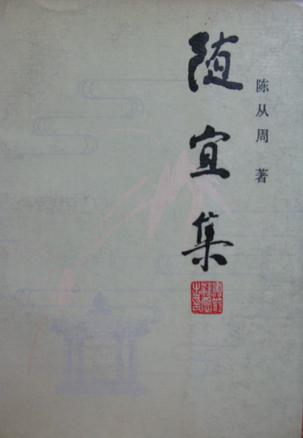 随宜集
陈从周 著